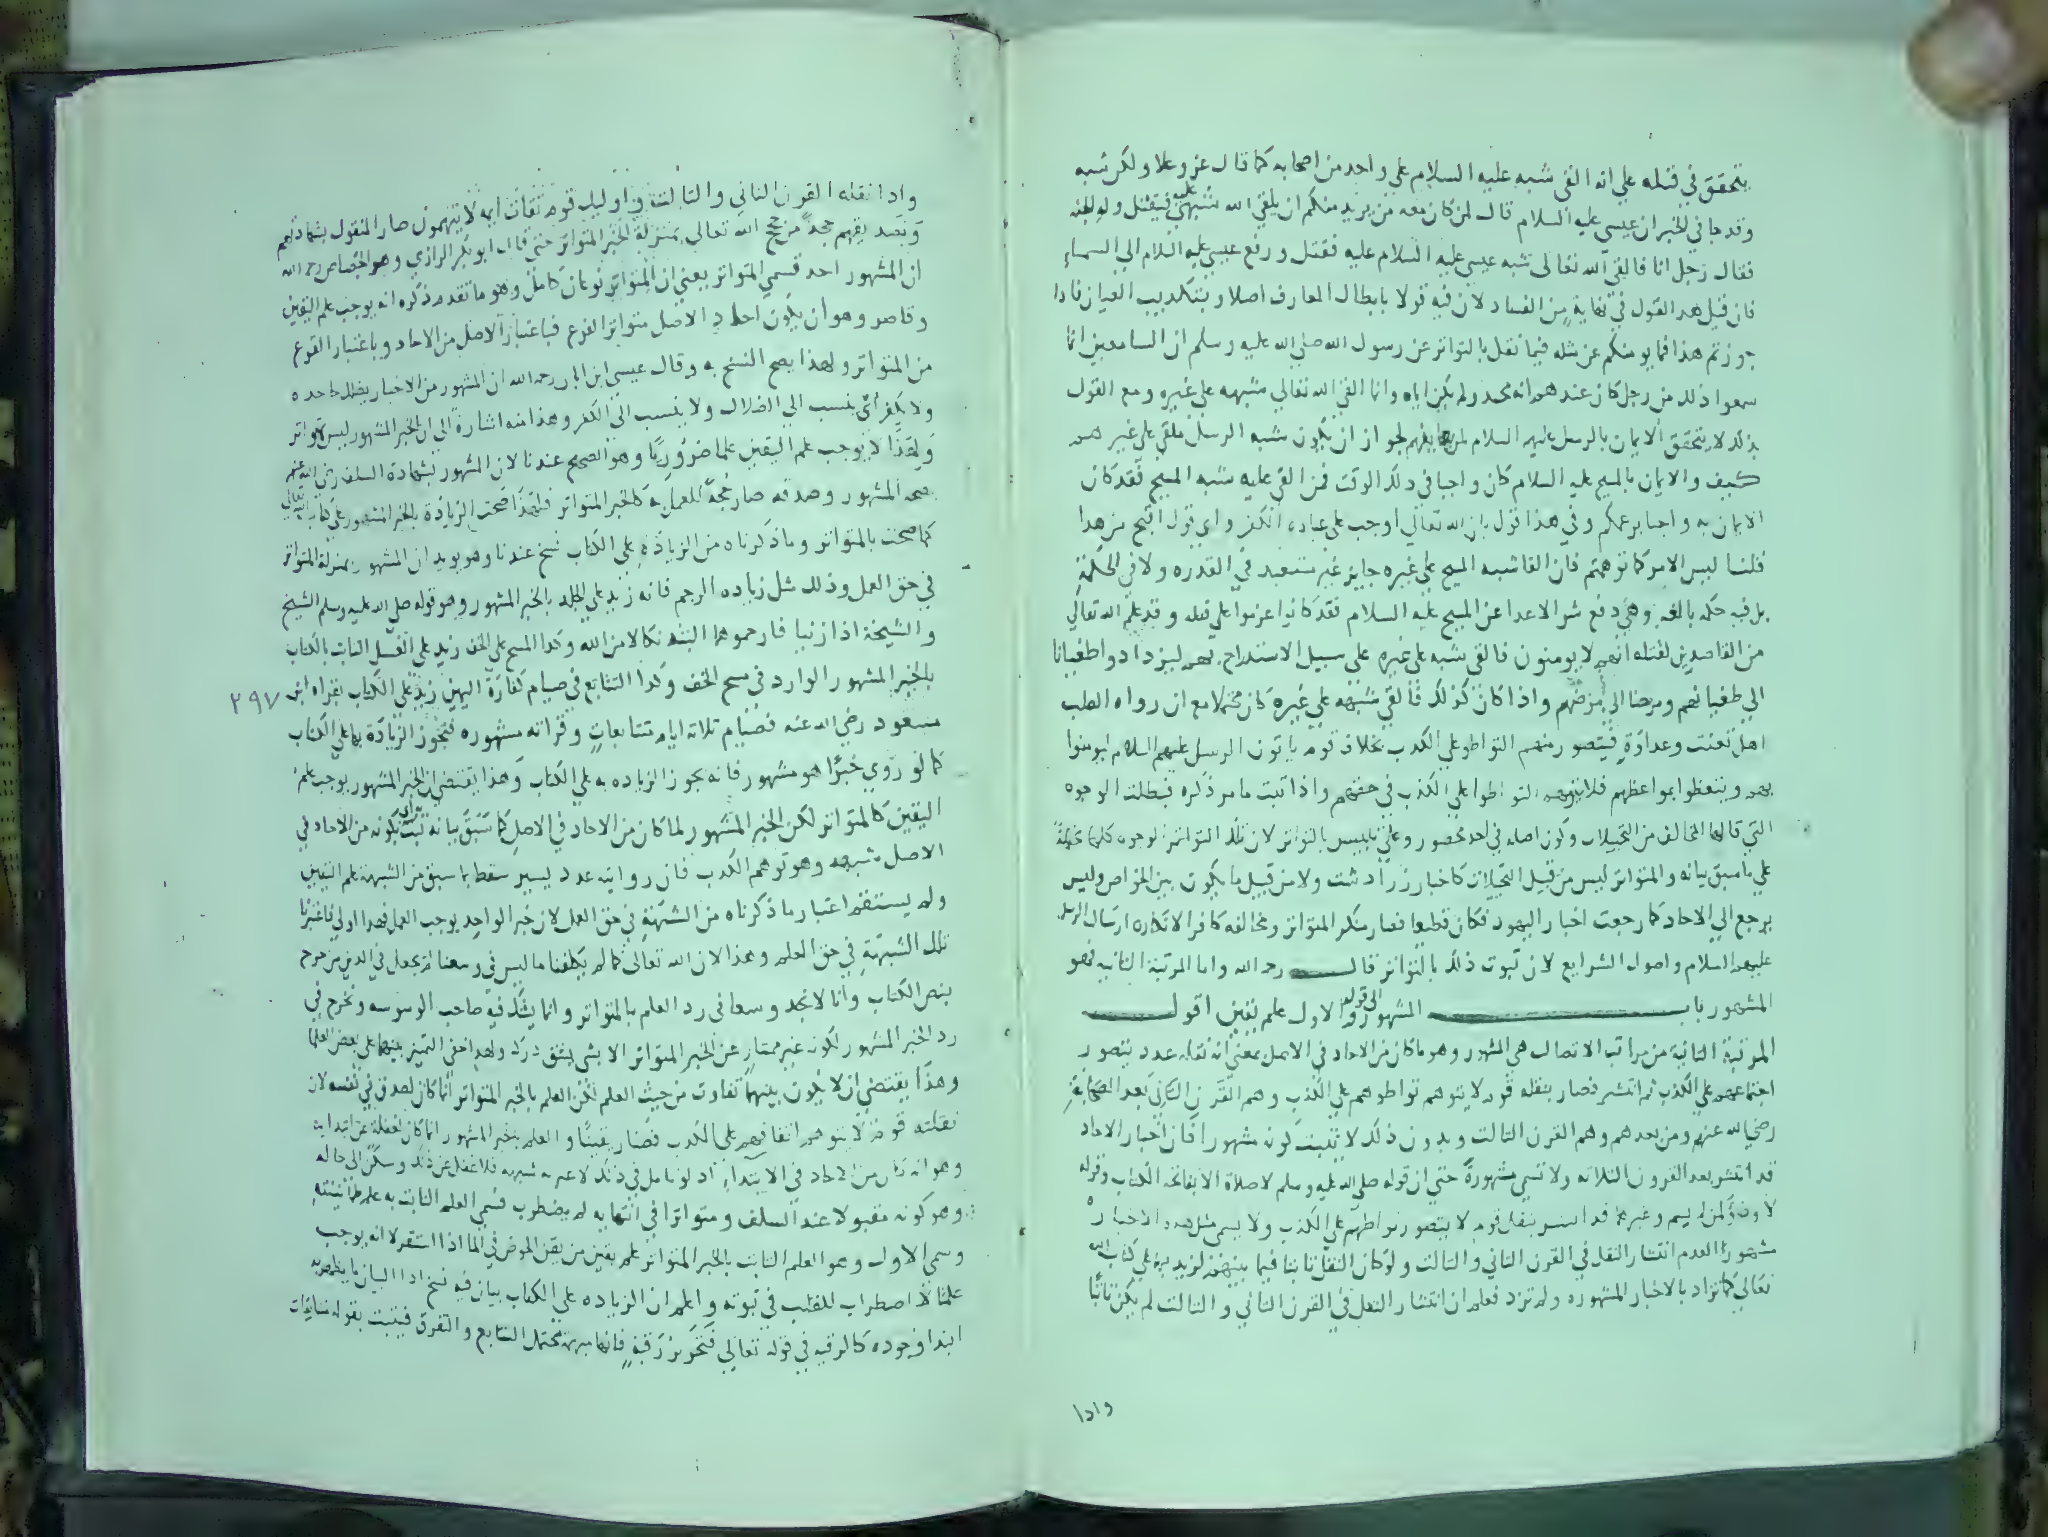 يتحقق في قتله علي انه القي شبه عليه السلام علي واحد من اصحابه كما قال عز وعلا ولكن شبه
وقد جا في الخبر ان عيسي عليه السلام قال لمن كان معه من يريد منكم ان يلقي الله شبهي عليه فيقتل وله الجنه
فقال رجل انا فالقي الله تعالى شبه عيسي عليه السلام عليه فقتل ورفع عيسي عليه السلام الي السماء
فان قيل هذا القول في نهاية من الفساد لان فيه قولا بابطال المعارف اصلا وبتكذيب العيان فاذا
جوزتم هذا فما يومنكم عن مثله فيما نقل بالتواتر عن رسول الله صلي الله عليه وسلم ان السامعين انما
سمعوا ذلك من رجل كان عندهم انه محمد ولم يكن اياه وانما القي الله تعالي شبهه علي غيره ومع القول
بذلك لا يتحقق الايمان بالرسل عليهم السلام لمن يعاينهم لجواز ان يكون شبه الرسل ملقي علي غيرهم
كيف والايمان بالمسيح عليه السلام كان واجبا في ذلك الوقت فمن القي عليه شبه المسيح فقد كان
الايمان به واجبا بزعمكم وفي هذا قول بان الله تعالي اوجب على عباده الكفر واي قول اقبح من هذا
قلنا ليس الامر كما توهمتم فان القا شبه المسيح علي غيره جايز غير مستبعد في القدره ولا في الحكمة
بل فيه حكمه بالغه وهي دفع شر الاعدا عن المسيح عليه السلام فقد كانوا عزموا علي قتله وقد علم الله تعالي
من القاصدين لقتله انهم لا يومنون فالقي شبه علي غيره علي سبيل الاستدراج لهم ليزدادوا طغيانا
الي طغيانهم ومرضا الي مرضهم واذا كان كذلك فالقي شبهه علي غيره كان محتملا مع ان رواه الصلب
اهل تعنت وعداوة فيتصور منهم التواطو علي الكذب بخلاف قوم ياتون الرسل عليهم السلام ليومنوا
بهم ويتعظوا بمواعظهم فلا يتوهم التواطوا علي الكذب في حقهم واذا ثبت ما مر ذكره فبطلت الوجوه
التي قالها المخالف من التخييلات وكون اصله في احد محصور وعلي تلبيس بالتواتر لان تلك التواتر الوجوه كلها
علي ما سبق بيانه والمتواتر ليس من قبيل التخيلات كاخبار زرادشت ولا من قبيل ما يكون بين الخواص وليس
يرجع الي الاحاد كما رجعت اخبار اليهود فكان قطعا فصار منكر المتواتر ومخالفه كافرا لانكاره ارسال الرسل
عليهم السلام واصول الشرايع لان ثبوت ذلك بالتواتر قال رحمه الله واما المرتبة الثانيه فهو
المشهور باب المشهور الي قوله الاول علم يقين اقول
المرتبة الثانية من مراتب الاتصال هي المشهور وهو ما كان من الاحاد في الاصل بمعني انه نقله عدد يتصور
اجتماعهم علي الكذب ثم انتشر فصار بنقله قوم لا يتوهم تواطوهم علي الكذب وهم القرن الثاني بعد الصحابة
رضي الله عنهم ومن بعدهم وهم القرن الثالث وبدون ذلك لا يثبت كونه مشهورا فان اخبار الاحاد
قد انتشر بعد القرون الثلاثه ولا تسمي مشهورة حتي ان قوله صلي الله عليه وسلم لا صلاة الا بفاتحة الكتاب وقوله
لا وضو لمن لم يسم وغيرهما قد انتشر بنقل قوم لا يتصور تواطؤهم علي الكذب ولا يسمي مثل هذه الاخبار
مشهورا لعدم انتشار النقل في القرن الثاني والثالث ولو كان النقل ثابتا فيما بينهم لزيد به علي كتاب الله
تعالي كما تزاد بالاخبار المشهوره ولم تزد فعلم ان انتشار النقل في القرن الثاني والثالث لم يكن ثابتا
واذا
واذا نقله القرن الثاني والثالث واوليك قوم ثقات ايمه لا يتهمون صار المنقول بشهادتهم
وتصديقهم حجة من حجج الله تعالي بمنزلة الخبر المتواتر حتي قال ابو بكر الرازي وهو الجصاص رحمه الله
ان المشهور احد قسمي المتواتر يعني ان المتواتر نوعان كامل وهو ما تقدم ذكره انه يوجب علم اليقين
وقاصر وهو ان يكون احاد الاصل متواتر الفرع فباعتبار الاصل من الاحاد وباعتبار الفرع
من المتواتر ولهذا يصح النسخ به وقال عيسي ابن ابان رحمه الله ان المشهور من الاخبار يضلل جاحده
ولا يكفر أي ينسب الي الضلال ولا ينسب الي الكفر وهذا منه اشارة الي ان الخبر المشهور ليس بمتواتر
ولهذا لا يوجب علم اليقين علما ضروريا وهو الصحيح عندنا لان المشهور بشهادة السلف رضي الله عنهم
صحه المشهور وصدقه صار حجة للعمل به كالخبر المتواتر فلهذا صحت الزيادة بالخبر المشهور علي كتاب الله تعالي
كما صحت بالمتواتر وما ذكرناه من الزيادة علي الكتاب نسخ عندنا وهو يويد ان المشهور بمنزلة المتواتر
في حق العمل وذلك مثل زياده الرجم فانه زيد علي الجلد بالخبر المشهور وهو قوله صلي الله عليه وسلم الشيخ
والشيخة اذا زنيا فارجموهما البتة نكالا من الله وكذا المسح علي الخف زيد علي الغسل الثابت بالكتاب
بالخبر المشهور الوارد في مسح الخف وكذا التتابع في صيام كفارة اليمين زيد علي الكتاب بقراه ابن
٢٩٧
مسعود رضي الله عنه فصيام ثلاثة ايام متتابعات وقراته مشهوره فتجوز الزيادة بها علي الكتاب
كما لو روي خبرا هو مشهور فانه يجوز الزياده به علي الكتاب وهذا يقتضي ان الخبر المشهور يوجب علم
اليقين كالمتواتر لكن الخبر المشهور لما كان من الاحاد في الاصل كما سبق بيانه ثبت بكونه من الاحاد في
الاصل شبهه وهو توهم الكذب فان روايته عدد يسير سقط بما سبق من الشبهة علم اليقين
ولم يستقم اعتبار ما ذكرناه من الشبهة في حق العمل لان خبر الواحد يوجب العمل فهذا اولي فاعتبرنا
تلك الشبهة في حق العلم وهذا لان الله تعالى كما لم يكلفنا ما ليس في وسعنا لم يجعل في الدين من حرج
بنص الكتاب وأنا لا نجد وسعا في رد العلم بالمتواتر وانما يشك فيه صاحب الوسوسه ونحرج في
رد الخبر المشهور لكونه غير ممتاز عن الخبر المتواتر الا بشي يشق دركه ولهذا خفي التميز بينهما علي بعض العلما
وهذا يقتضي ان لا يكون بينهما تفاوت من حيث العلم لكن العلم بالخبر المتواتر انما كان لصدق في نفسه لان
نقلته قوم لا يتوهم اتفاقهم علي الكذب فصار يقينا والعلم بخبر المشهور انما كان لغفلة عن ابتدايه
وهو انه كان من الاحاد في الابتداء اذ لو تامل في ذلك لاعتراه شبهه فلما غفل عن ذلك وسكن الي حاله
وهو كونه مقبولا عند السلف ومتواترا في انتهايه لم يضطرب فسمي العلم الثابت به علم طمأنينة
وسمي الاول وهو العلم الثابت بالخبر المتواتر علم يقين من يقن الحوض في الما اذا استقر لانه يوجب
علما لا اضطراب للقلب في ثبوته واعلم ان الزياده علي الكتاب بيان فيه نسخ اذ البيان ما يظهر به
ابتدا وجوده كالرقبه في قوله تعالي فتحرير رقبة فانها مبهمة تحتمل التتابع والتفرق فيثبت بقوله متتابعات